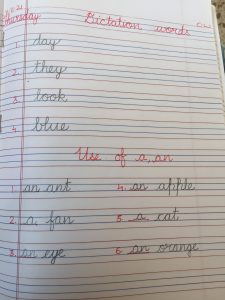 Thursday
Dictation words
1. day
2. they
3. look
4. blue
Use of a, an
1. an ant
4. an apple
2. a fan
5. a cat
3. an eye
6. an orange